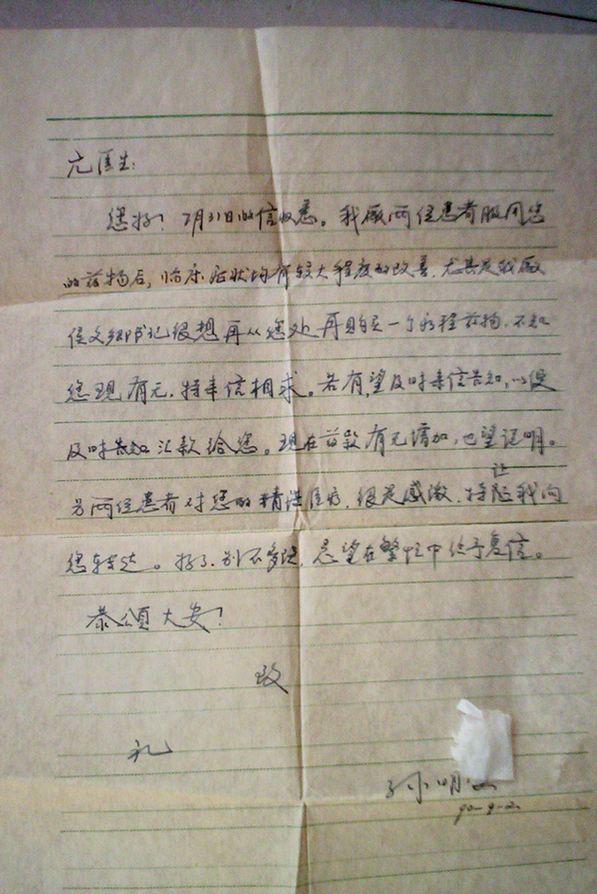 亢医生:
您好!7月31日的信收悉。我厂两位患者服用您
的药物后,临床症状均有较大程度的改善,尤其是我厂
位文卿书记很想再从您处再购买一个疗程药物,不知
您现有无,特来信相求。若有,望及时来信告知,以便
及时告知汇款给您。现在药款有无增加,也望证明。
另两位患者对您的精湛医疗,很是感激,特让我向
您转达。好了,别不多说,忌望在繁忙中给予复信。
恭颂大安!
致
礼
孙明